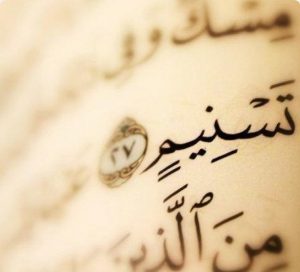 مِسْكٌ وَفِى
تَسْنِيمٍ ٢٧
مِنَ ٱلَّذِينَ